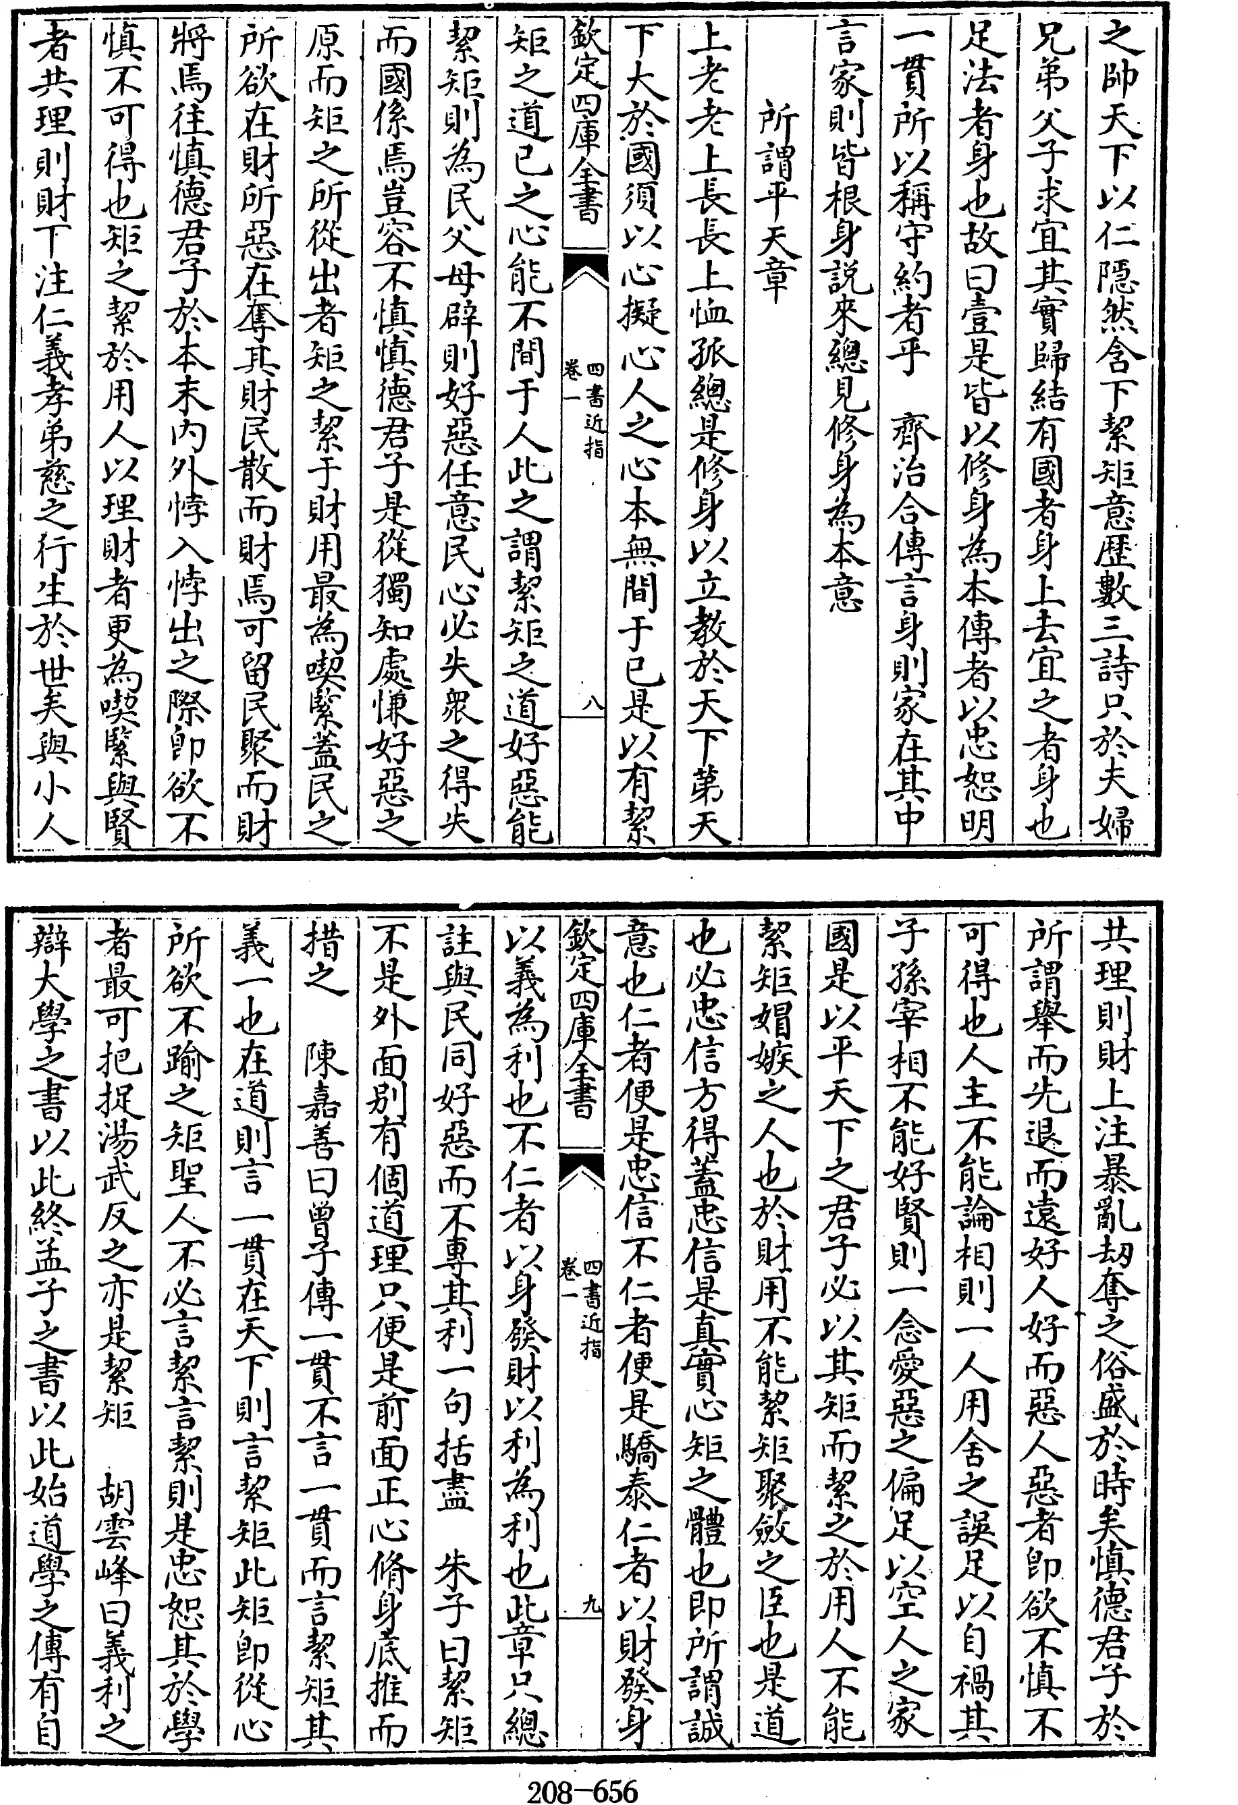 之帥天下以仁隱然含下絜矩意歷數三詩只於夫婦
兄弟父子求宜其實歸結有國者身上去宜之者身也
足法者身也故曰壹是皆以修身為本傳者以忠恕明
一貫所以稱守約者乎　齊治合傳言身則家在其中
言家則皆根身説來總見修身為本意
所謂平天章
上老老上長長上恤孤總是修身以立教於天下第天
下大於國須以心擬心人之心本無間于已是以有絜
欽定四庫全書
四書近指
卷一
八
矩之道已之心能不間于人此之謂絜矩之道好惡能
絜矩則為民父母辟則好惡任意民心必失衆之得失
而國係焉豈容不慎慎德君子是從獨知處慊好惡之
原而矩之所從出者矩之絜于財用最為喫緊蓋民之
所欲在財所惡在奪其財民散而財焉可留民聚而財
將焉往慎德君子於本末内外悖入悖出之際卽欲不
慎不可得也矩之絜於用人以理財者更為喫緊與賢
者共理則財下注仁義孝弟慈之行生於世矣與小人
共理則財上注暴亂刼奪之俗盛於時矣慎德君子於
所謂舉而先退而遠好人好而惡人惡者卽欲不慎不
可得也人主不能論相則一人用舍之誤足以自禍其
子孫宰相不能好賢則一念愛惡之偏足以空人之家
國是以平天下之君子必以其矩而絜之於用人不能
絜矩媢嫉之人也於財用不能絜矩聚斂之臣也是道
也必忠信方得蓋忠信是真實心矩之體也即所謂誠
意也仁者便是忠信不仁者便是驕泰仁者以財發身
欽定四庫全書
四書近指
卷一
九
以義為利也不仁者以身發財以利為利也此章只總
註與民同好惡而不專其利一句括盡　朱子曰絜矩
不是外面别有個道理只便是前面正心脩身底推而
措之　陳嘉善曰曾子傳一貫不言一貫而言絜矩其
義一也在道則言一貫在天下則言絜矩此矩卽從心
所欲不踰之矩聖人不必言絜言絜則是忠恕其於學
者最可把捉湯武反之亦是絜矩　胡雲峰曰義利之
辯大學之書以此終孟子之書以此始道學之傳有自
208-656